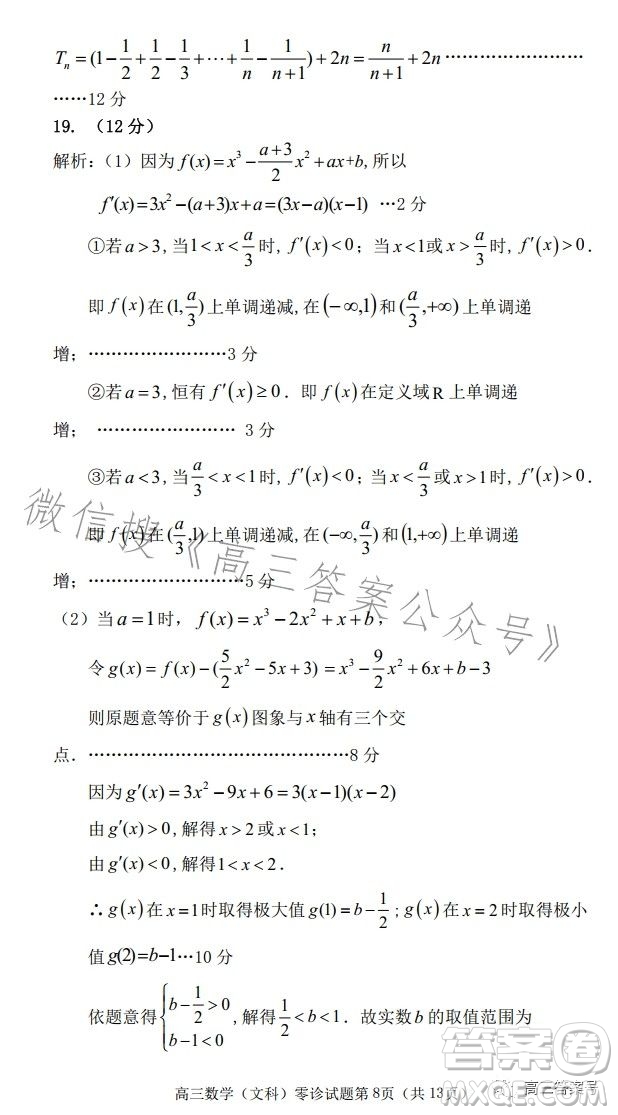 Tₙ=(1−1/2+1/2−1/3+⋯+1/n−1/(n+1))+2n=n/(n+1)+2n………………………
……12 分
19. （12 分）
解析：（1）因为 f(x)=x³−(a+3)/2 x²+ax+b，所以
f′(x)=3x²−(a+3)x+a=(3x−a)(x−1) …2 分
①若 a>3，当 1<x<a/3 时，f′(x)<0；当 x<1 或 x>a/3 时，f′(x)>0．
即 f(x) 在 (1,a/3) 上单调递减，在 (−∞,1) 和 (a/3,+∞) 上单调递
增；……………………3 分
②若 a=3，恒有 f′(x)≥0．即 f(x) 在定义域 R 上单调递
增； …………………… 3 分
③若 a<3，当 a/3<x<1 时，f′(x)<0；当 x<a/3 或 x>1 时，f′(x)>0．
即 f(x) 在 (a/3,1) 上单调递减，在 (−∞,a/3) 和 (1,+∞) 上单调递
增；………………………5 分
（2）当 a=1 时，f(x)=x³−2x²+x+b，
令 g(x)=f(x)−(5/2 x²−5x+3)=x³−9/2 x²+6x+b−3
则原题意等价于 g(x) 图象与 x 轴有三个交
点．………………………………………8 分
因为 g′(x)=3x²−9x+6=3(x−1)(x−2)
由 g′(x)>0，解得 x>2 或 x<1；
由 g′(x)<0，解得 1<x<2．
∴ g(x) 在 x=1 时取得极大值 g(1)=b−1/2；g(x) 在 x=2 时取得极小
值 g(2)=b−1…10 分
依题意得 {b−1/2>0, b−1<0，解得 1/2<b<1．故实数 b 的取值范围为
高三数学（文科）零诊试题第 8页（共 13页）
微信搜《高三答案公众号》
答案圈
高三答案号